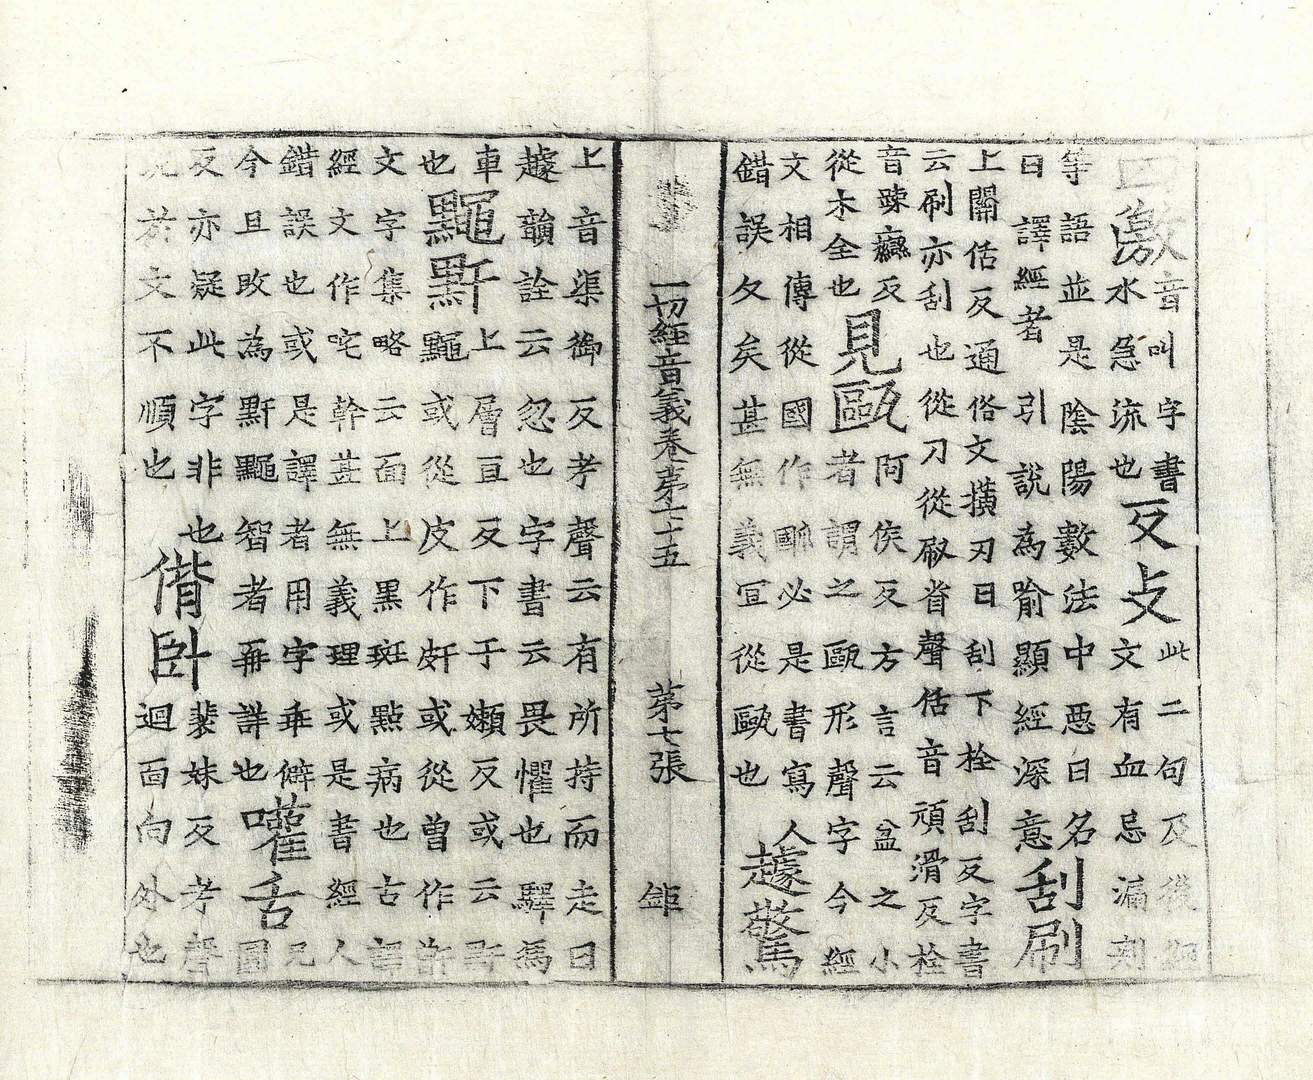 四激 音叫字書
水急流也
反支 此二句及後細
文有血忌漏刻
等語並是陰陽數法中惡日名
日譯經者引說為喻顯經深意
刮刷
上關佸反通俗文撗刃曰刮下栓刮反字書
云刷亦刮也從刀從㕞省聲佸音頑滑反栓
音踈癵反
從木全也
見甌 阿侯反方言云盆之小
者謂之甌形聲字今經
文相傳從國作必是書寫人
錯誤久矣甚無義宜從甌也
驚
一切經音義卷苐七十五 苐七張 鉅
上音渠御反考聲云有所持而走曰
韻詮云忽也字書云畏懼也驛馬
車
也
䵴䵟 上層亘反下于嬾反或云䵟
䵴或從皮作皯或從曾作
文字集略云面上黑斑點病也古譯
經文作咤幹甚無義理或是書經人
錯誤也或是譯者用字乖僻
今且改為䵟䵴智者再詳也
嚾舌 元
圓
反亦疑此字非也
現於文不順也
偝卧 裴妹反考聲
迴面向外也